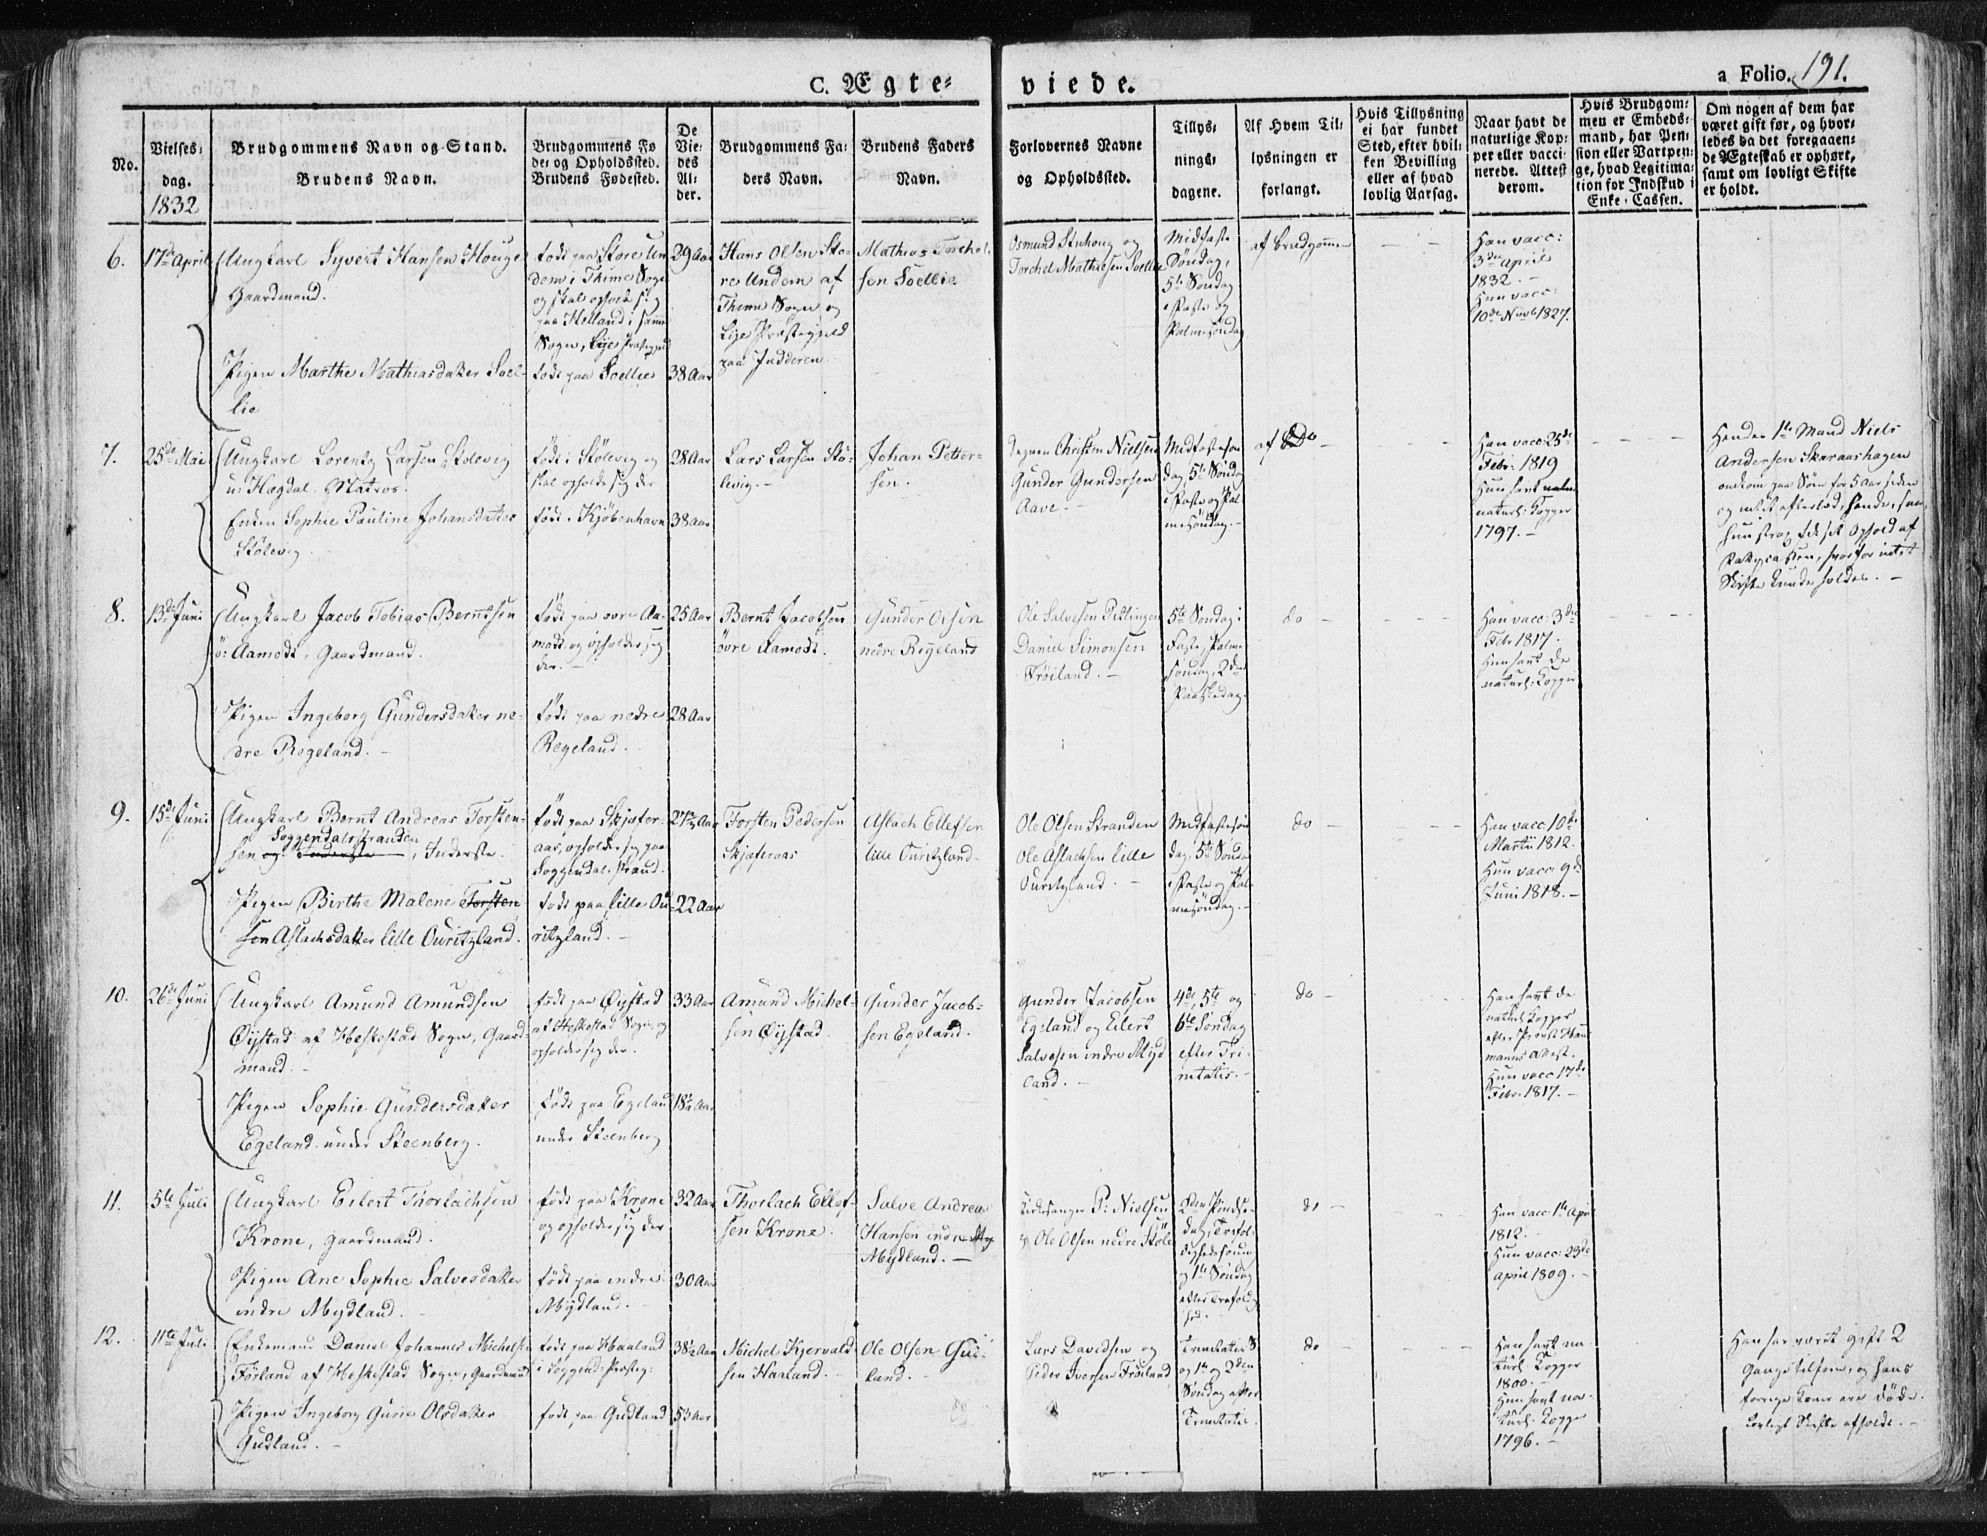 C. Ægte-
viede.
a Folio. 191.
No.
Vielses-
dag.
1832
Brudgommens Navn og Stand.
Brudens Navn.
Brudgommens Fø
de- og Opholdssted.
Brudens Fødested.
De
Vie-
des
Al-
der.
Brudgommens Fa-
ders Navn.
Brudens Faders
Navn.
Forlovernes Navne
og Opholdssted.
Tillys-
nings-
dagene.
Af Hvem Til-
lysningen er
forlangt.
Hvis Tillysning
ei har fundet
Sted, efter hvil-
ken Bevilling
eller af hvad
lovlig Aarsag.
Naar havt de
naturlige Kop-
per eller vacci-
nerede. Attest
derom.
Hvis Brudgom-
men er Embeds-
mand, har Pen-
sion eller Vartpen-
ge, hvad Legitima-
tion for Indskud i
Enke-Cassen.
Om nogen af dem har
været gift før, og hvor-
ledes da det foregaaen-
de Ægteskab er ophørt,
samt om lovligt Skifte
er holdt.
6.
17de April
Ungkarl Syvert Hansen Houge
Gaardmand.
Pigen Marthe Mathiasdatter Soel-
lie
født paa Store Un
dem i Thime Sogn
og skal opholde sig
paa Helland i samme
Sogn, Lye Præstegjeld
født paa Soellie
29 Aar
38 Aar
Hans Olsen Sto-
re Undem af
Thime Sogn og
Lye Præstegjeld
paa Jædderen.
Mathias Torchel-
sen Soellie
Osmund Stuhoug og
Torchel Mathiesen Soellie
Midfaste
Søndag,
5te Søndag
i Faste og
Palmesøndag
af Brudgommen
Han vacc:
3die April
1832
Hun vacc:
10de Novb 1827.
7.
25de Mai
Ungkarl Lorentz Larsen Stølevig
u: Hægdal. Matros.
Enken Sophie Pauline Johansdatter
Stølevig
født i Stølevig og
skal opholde sig der
født i Kjøbenhavn
28 Aar
38 Aar
Lars Larsen Stø-
levig.
Johan Petter-
sen.
Degnen Christen Nielsen
Gunder Gundersen
Aave.
Midfastesøn
dag, 5te Søndag
i Faste og Pal-
mesøndag.
af Do
Han vacc: 25de
Febr: 1819
Hun havt
naturl: Kopper
1797.
Hendes 1te Mand Niels
Andersen Skaraashagen
omkom paa Søen for 5 Aar siden
og intet efterlod hende, saa
hun strax fik sit Ophold af
Fattigcassen, hvorfor intet
Skifte kunde holdes.
8.
13de Juni
Ungkarl Jacob Tobias Berntsen
ø: Aamodt, Gaardmand.
Pigen Ingeborg Gundersdatter ne-
dre Regeland.
født paa øvre Aa-
modt og opholder sig
der.
født paa nedre
Regeland.
25 Aar
28 Aar
Bernt Jacobsen
øvre Aamodt.
Gunder Olsen
nedre Regeland
Ole Salvesen Pitlingen
Daniel Simonsen
Frøiland.
5te Søndag i
Faste, Palme
søndag, 2den
Paaskedag.
do
Han vacc: 3die
Febr 1817.
Hun havt de
naturl: Kopper
9.
15de Juni
Ungkarl Bernt Andreas Torsten-
Soggendalsstranden
sen og Inderste, Inderste.
Pigen Birthe Malene Torsten
sen Aslachsdatter lille Ouritzland.
født paa Skjæfer-
aas, opholder sig paa
Soggendal strand.
født paa lille Ou-
ritzland.
27½ Aar
22 Aar
Torsten Pedersen
Skjæferaas
Aslach Ellefsen
lille Ouritzland.
Ole Olsen Stranden
Ole Aslachsen lille
Ouritzland.
Midfastesøn
dag, 5te Søndag
i Faste og Pal-
mesøndag.
do
Han vacc: 10de
Martii 1812.
Hun vacc: 9de
Juni 1818.
10.
26de Juni
Ungkarl Amund Amundsen
Øystad af Heskestad Sogn, Gaard-
mand.
Pigen Sophie Gundersdatter
Egeland under Steenberg.
født paa Øystad
af Heskestad Sogn, og
opholder sig der.
født paa Egeland
under Steenberg
33 Aar
18½ Aar
Amund Michel-
sen Øystad
Gunder Jacob-
sen Egeland.
Gunder Jacobsen
Egeland og Eilert
Salvesen indre Myd
land.
4de, 5te og
6te Søndag
efter Tri-
nitatis.
do
Han havt de
naturl: Kopper
efter Provst
manns Attest.
Hun vacc: 17de
Febr: 1817.
11.
5te Juli
Ungkarl Eilert Thorlachsen
Krone, Gaardmand.
Pigen Ane Sophie Salvesdatter
indre Mydland.
født paa Krone
og opholder sig der
født paa indre
Mydland.
32 Aar
30 Aar
Thorlach Ellef-
sen Krone.
Salve Andreas
Hansen indre
Mydland.
Kirkesanger P: Nielsen
& Ole Olsen nedre Støle
2den Pindse-
dag, Trefol-
dighedssøndag
og 1te Søndag
efter Trefoldig
hed.
do
Han vacc 1te April
1812.
Hun vacc: 23de
April 1809.
12.
11te Juli
Enkemand Daniel Johannes Michelsen
Førland af Heskestad Sogn, Gaardmand
Pigen Ingeborg Gurie Olsdatter
Gudland.
født paa Haaland
i Soggend: Præsteg:
født paa Gudland
38½ Aar
53 Aar
Michel Kjervald
sen Haaland.
Ole Olsen Gud-
land.
Lars Davidsen og
Peder Iversen Frøiland
Trinitatis S
og 1te og 2den
Søndag efter
Trinitatis.
do
Han havt na
turl Kopper
1800.
Hun havt na-
turl: Kopper
1796.
Han har været gift 2
Gange tilforn, og hans
forrige Koner ere døde.
Lovligt Skifte afholdt.